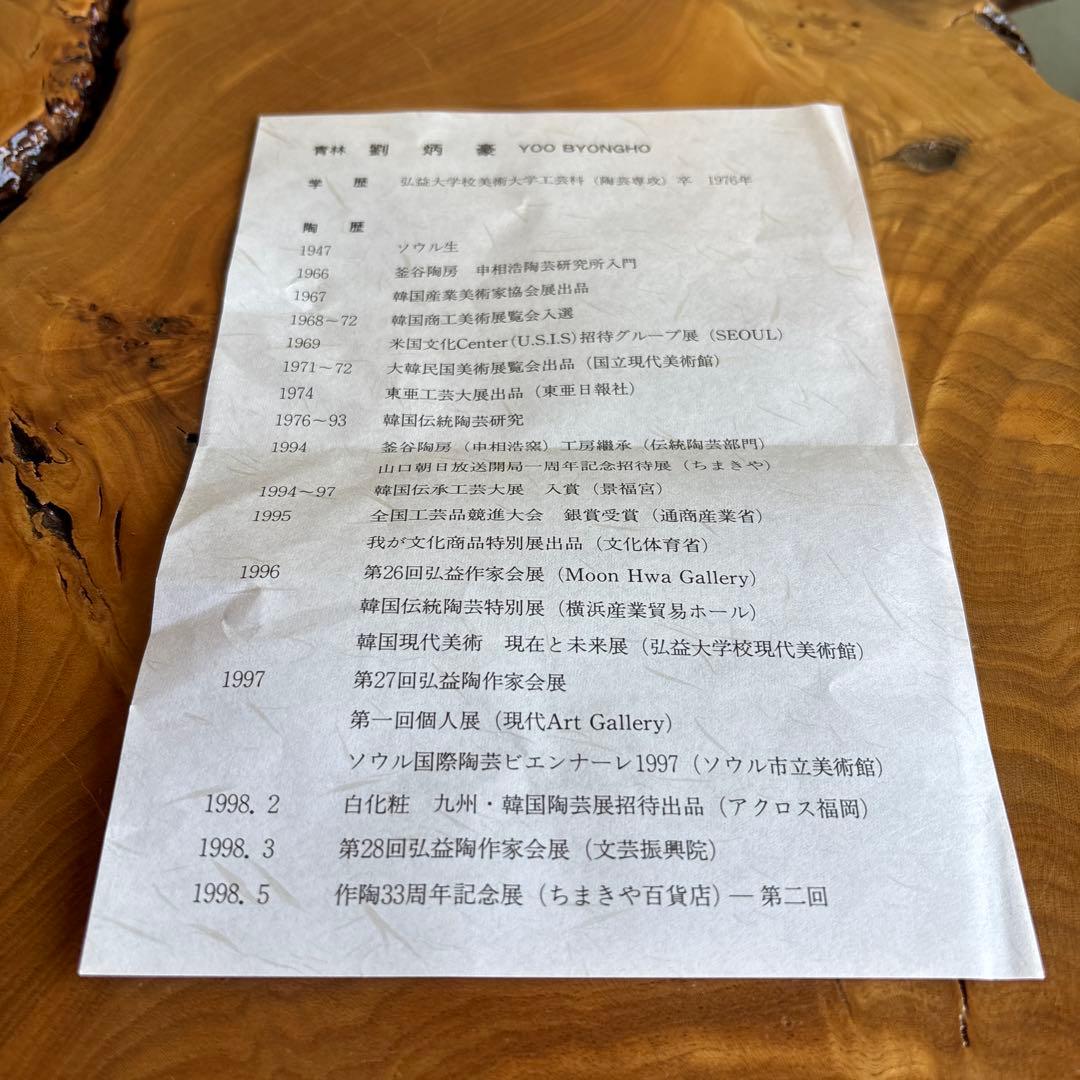 青林 劉 炳 豪 YOO BYONGHO
学 歴 弘益大学校美術大学工芸科（陶芸専攻）卒 1976年
陶 歴
1947 ソウル生
1966 釜谷陶房 申相浩陶芸研究所入門
1967 韓国産業美術家協会展出品
1968〜72 韓国商工美術展覧会入選
1969 米国文化Center（U.S.I.S）招待グループ展（SEOUL）
1971〜72 大韓民国美術展覧会出品（国立現代美術館）
1974 東亜工芸大展出品（東亜日報社）
1976〜93 韓国伝統陶芸研究
1994 釜谷陶房（申相浩窯）工房継承（伝統陶芸部門）
山口朝日放送開局一周年記念招待展（ちまきや）
1994〜97 韓国伝承工芸大展 入賞（景福宮）
1995 全国工芸品競進大会 銀賞受賞（通商産業省）
我が文化商品特別展出品（文化体育省）
1996 第26回弘益作家会展（Moon Hwa Gallery）
韓国伝統陶芸特別展（横浜産業貿易ホール）
韓国現代美術 現在と未来展（弘益大学校現代美術館）
1997 第27回弘益陶作家会展
第一回個人展（現代Art Gallery）
ソウル国際陶芸ビエンナーレ1997（ソウル市立美術館）
1998. 2 白化粧 九州・韓国陶芸展招待出品（アクロス福岡）
1998. 3 第28回弘益陶作家会展（文芸振興院）
1998. 5 作陶33周年記念展（ちまきや百貨店）― 第二回